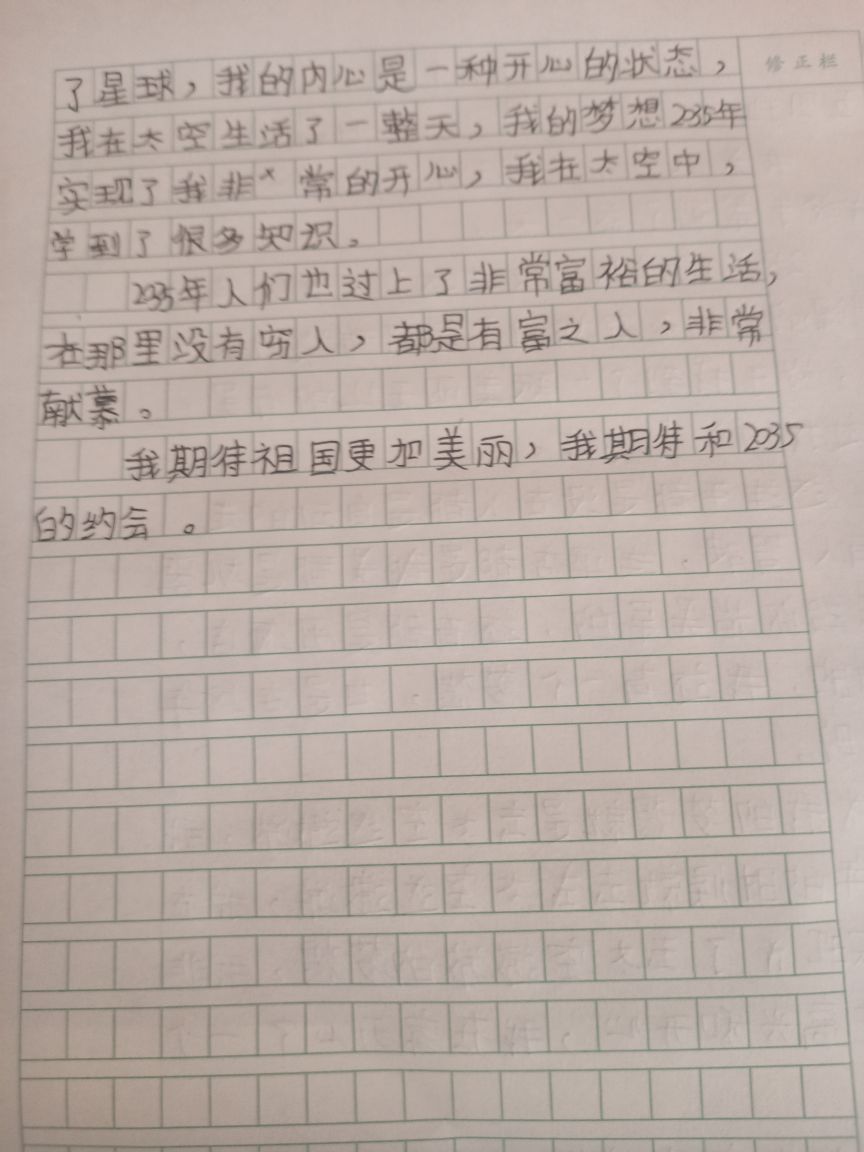 了星球，我的内心是一种开心的状态，
修正栏
我在太空生活了一整天，我的梦想235年
实现了我非常的开心，我在太空中，
学到了很多知识。
2035年人们也过上了非常富裕的生活，
在那里没有穷人，都是有富之人，非常
献慕。
我期待祖国更加美丽，我期待和2035
的约会。